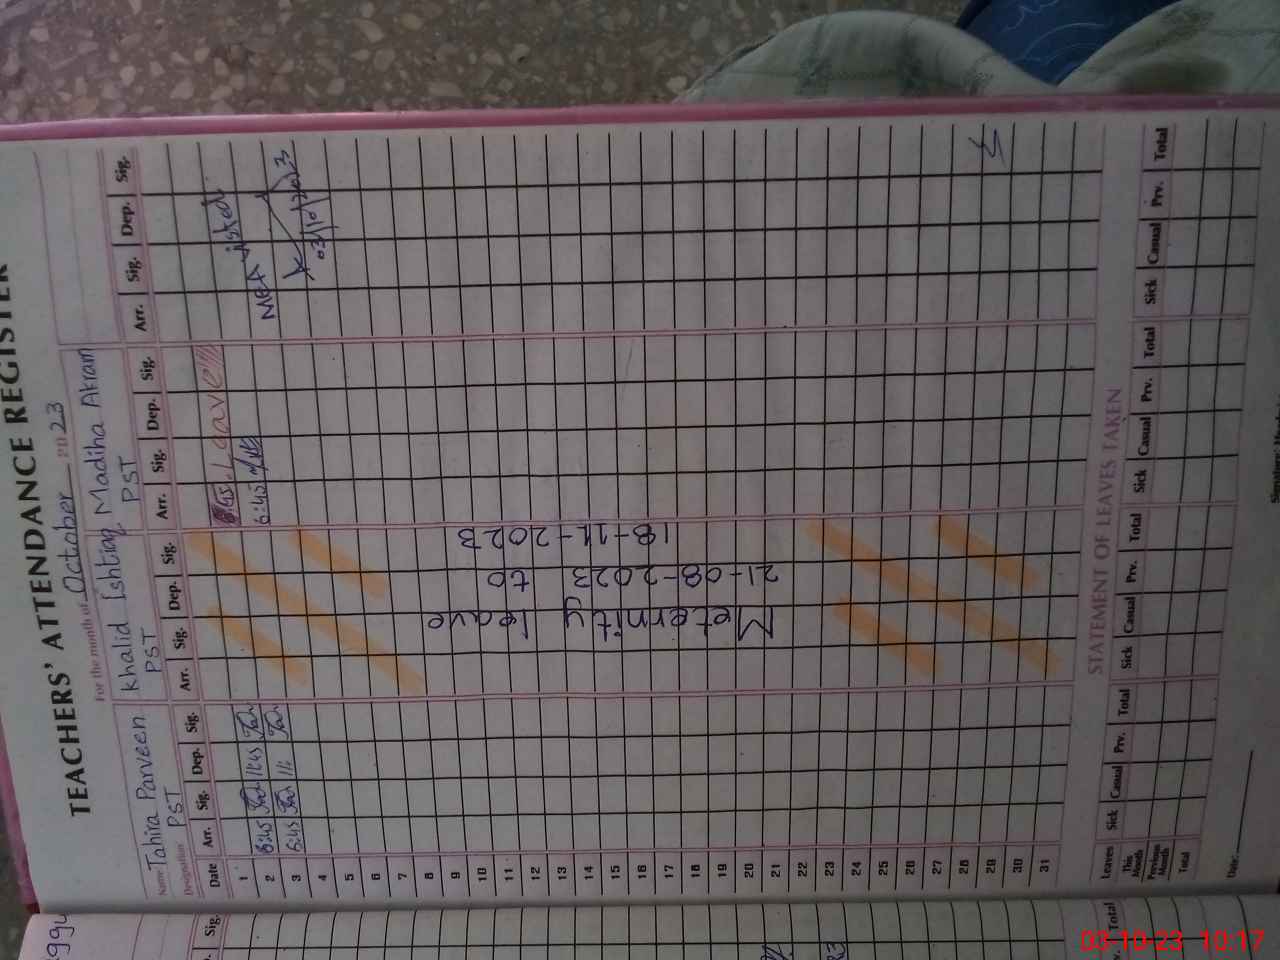 TEACHERS' ATTENDANCE REGISTER
For the month of October 2023
Name Tahira Parveen
Khalid Ishtiaq
Madiha Akram
Designation PST
PST
PST
Date Arr. Sig. Dep. Sig. Arr. Sig. Dep. Sig. Arr. Sig. Dep. Sig. Arr. Sig. Dep. Sig.
1
Leave
2 8:45 11:45
3
MEA visited
03/10/2023
4
5
6
7
8
9
10
11
12
13
14
15
16
17
18
19
20
21
22
23
24
25
26
27
28
29
30
31
Meternity leave
21-08-2023 to
18-11-2023
STATEMENT OF LEAVES TAKEN
Leaves Sick Casual Prv. Total Sick Casual Prv. Total Sick Casual Prv. Total Sick Casual Prv. Total
This Month
Previous Month
Total
Date:
Sig.
Total
03-10-23 10:17